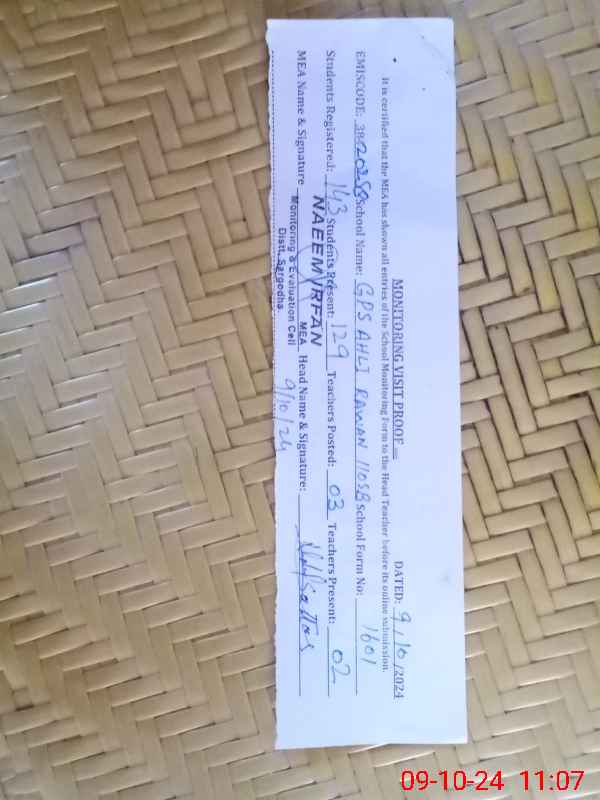 MONITORING VISIT PROOF DATED: 9/10/2024
It is certified that the MEA has shown all entries of the School Monitoring Form to the Head Teacher before its online submission.
EMISCODE: School Name: GPS AHLI RAWAN 110SB School Form No: 1601
Students Registered: 143 Students Present: 129 Teachers Posted: 03 Teachers Present: 02
NAEEM IRFAN
MEA Name & Signature MEA Head Name & Signature:
Monitoring & Evaluation Cell
Distt. Sargodha.
9/10/24
09-10-24 11:07